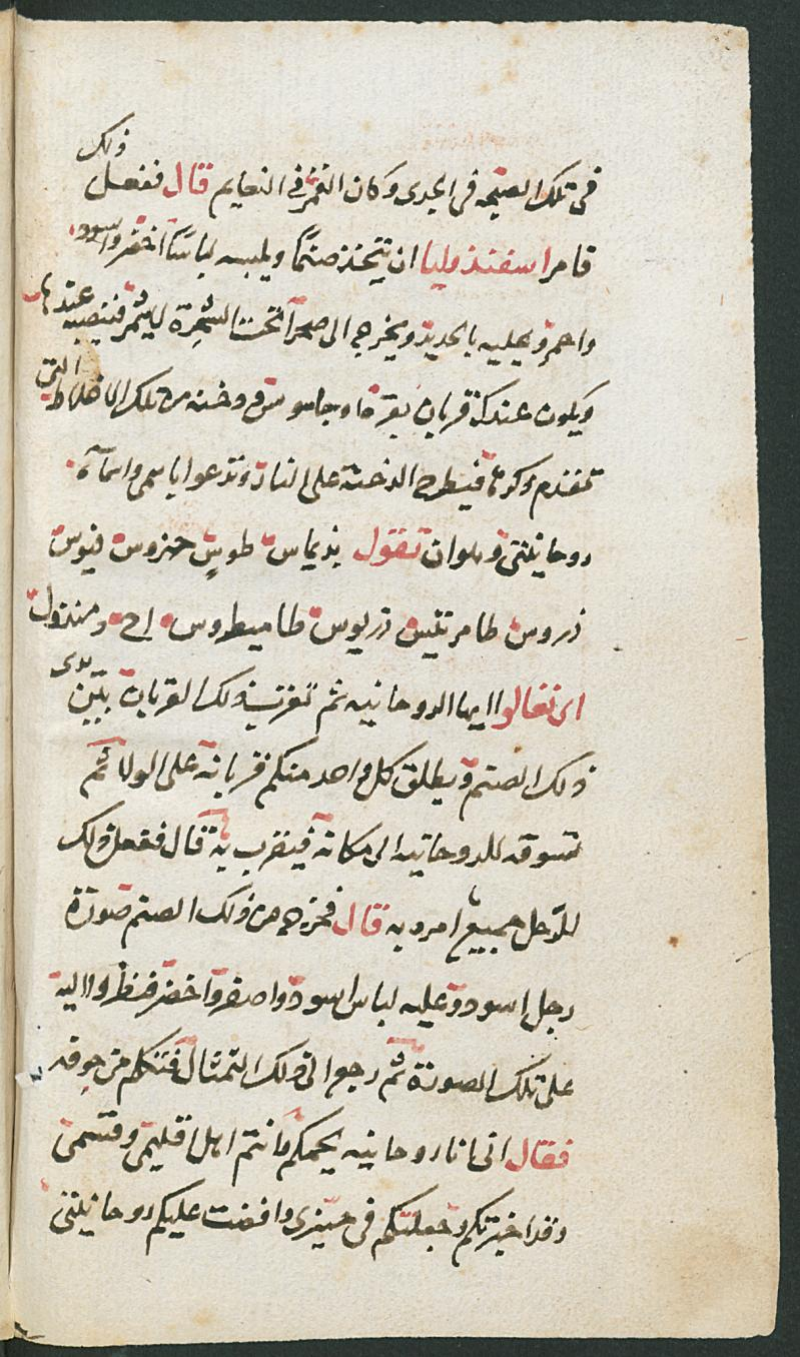 فى تلك الصيحه فى الجدى وكان القمر فى النعايم قال ففعل ذلك
فامر اسفندوليا ان يتخذ صنمًا ويلبسه لباسًا اخضر واسود
واحمر ويحليه بالحديد ويخرج الى صحرآ تحت الشجرة لا يثمر فينصبه عندها
ويكون عندك قربان بقرة وجاموس ودخنه من تلك الاخلاط التى
تقدم ذكرها فيطرح الدخنة على النار وتدعوا باسمى واسمآء
روحانيتى وهوان تقول بذيماس طوس حزوس فيوس
ذروس طامرتيس دريوس طاميطوس اح ومنذول
اى تعالوا ايها الروحانيه ثم تقرب ذلك القربان بين يدى
ذلك الصنم ويطلق كل واحد منكم قربانه على الولا ثم
تسوقه للروحانيه الى مكانه فيتقرب به قال ففعل ذلك
الرجل جميع امر به قال فخرج من ذلك الصنم صورة
رجل اسود وعليه لباس اسود واصفر واخضر فنظروا اليه
على تلك الصورة ثم رجع الى ذلك التمثال فتكلم من جوفه
فقال انى انا روحانيه يحمكم وانتم اهل اقليمى وقسمى
وقد اخبرتكم وجعلتكم فى حيزى وافضت عليكم روحانيتى